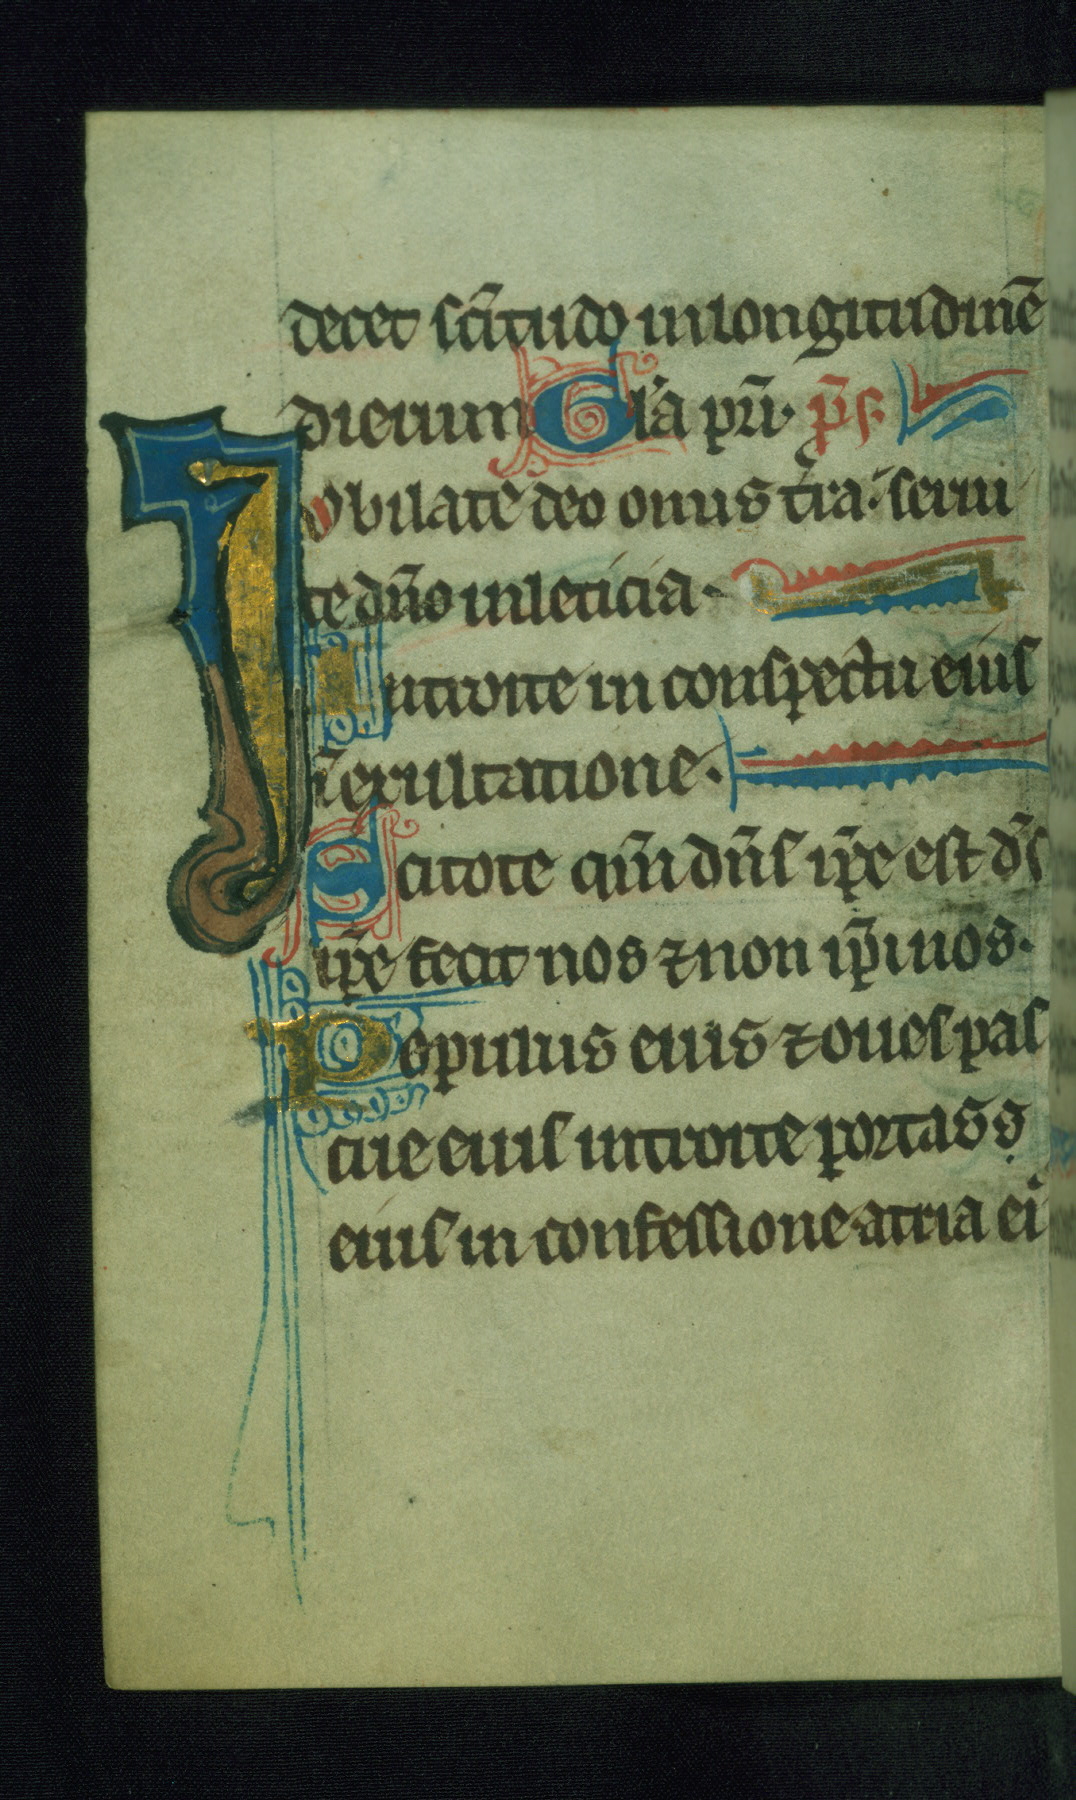 decet sc̄itudo in longitudinē
dierum Gl'a pr̄i. p̄s.
Iobilate deo omnis t̄ra. serui
te dn̄o in leticia.
Introite in conspectu eius
in̄ exultatione.
Scitote qm̄ dn̄s ip̄e est d̄s
ip̄e fecit nos ⁊ non ip̄i nos.
Populus eius ⁊ oues pas
cue eius introite portas
eius in confessione atria ei